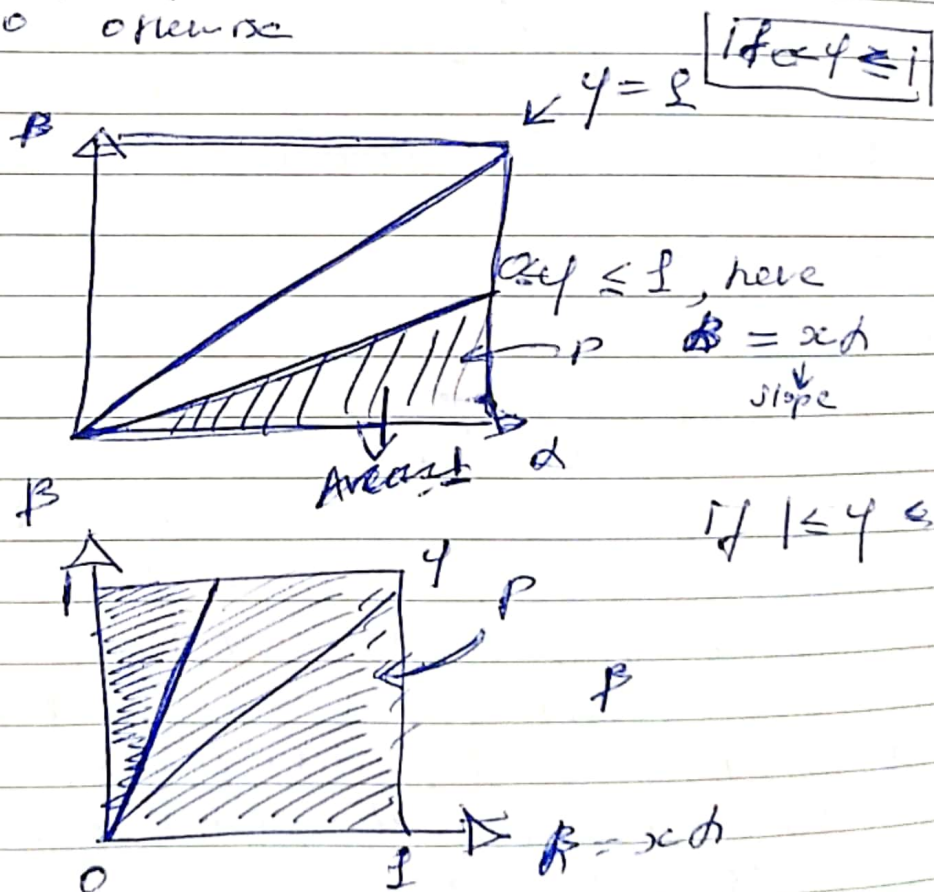 0 otherwise
if 0<y≤1
y = 1
β
0≤y ≤ 1, here
P β = xα
slope
Area=1 α
β if 1≤y ≤
1 y P
β
0 1 β = xα